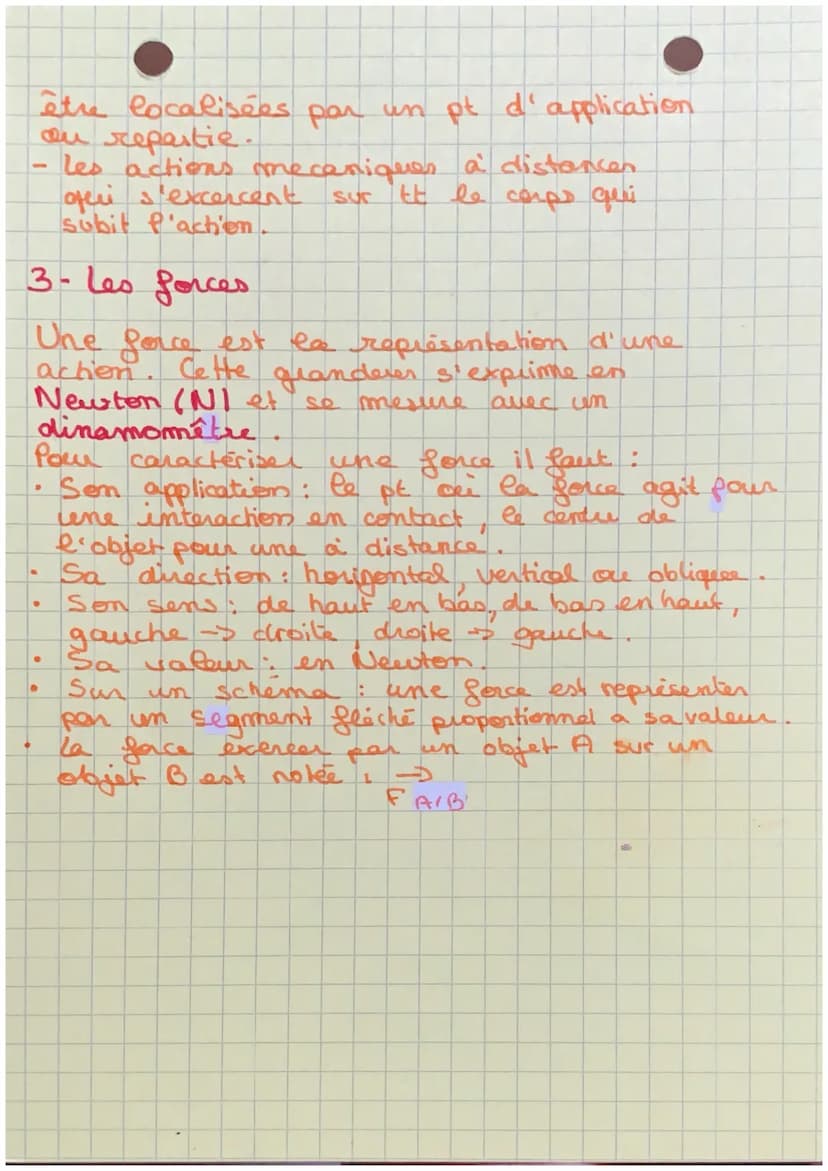 être localisées par un pt d'application
ou repartie.
- Les actions mecaniques à distances
qui s'excercent sur tt le corps qui
subit l'action.
3- Les forces
Une force est la représentation d'une
action. Cette grandeur s'exprime en
Newton (N) et se mesure avec un
dinamomêtre.
Pour caractériser une force il faut :
• Son application : le pt où la force agit pour
une interaction en contact, le centre de
l'objet pour une à distance.
• Sa direction : horizontal, vertical ou oblique.
• Son sens : de haut en bas, de bas en haut,
gauche -> droite, droite -> gauche.
• Sa valeur : en Newton.
• Sur un schéma : une force est représenter
par un segment fléché proportionnel a sa valeur.
• La force exercer par un objet A sur un
objet B est notée : →
F A/B